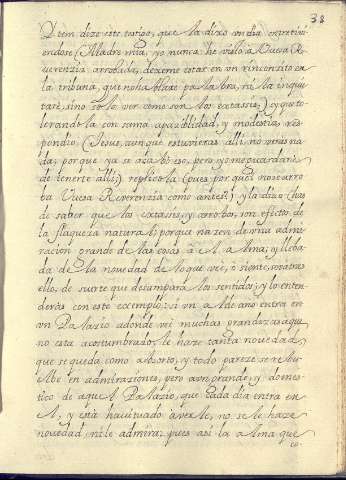 38
Yten dize este testigo, que la dixo vn dia entretini
endose (Madre mia, yo nunca he visto à Vuesa Re
uerenzia arrobada, dexeme estar en vn rinconzito en
la tribuna, que no hablare palabra, ni la inquie
tare, sino solo ver como son los extassis;) y
con suma apaziblidad, y modestia, res
pondio, (Jesus, aunque estuvieras alli, no vieras na
da, porque ya se acabò eso, pero yo me guardare
de tenerte alli;) replicola (pues por que no se arro
ba Vuesa Reverenzia como antes?) y la dixo (has
de saber que los extasis, y arrobos, son efecto, de
la flaqueza natural; porque nazen de vna admi
racion grande de las cosas à el Alma; y lleba
da de la novedad de lo que vee, ò siente,
ello, de suerte que desampara los sentidos; y lo enten
deràs con este exemplo: si vn Aldeano entra en
vn Palazio adonde vèe muchas grandezas a que
no esta acostumbrado, le haze tanta novedad,
que se queda como absorto, y todo pareze se
en admiraziones; pero a vn grande, y domes
tico de aquel Palazio, que cada dia entra en
el, y està havituado à verle, no se le haze
novedad, ni le admira; pues asi la alma que